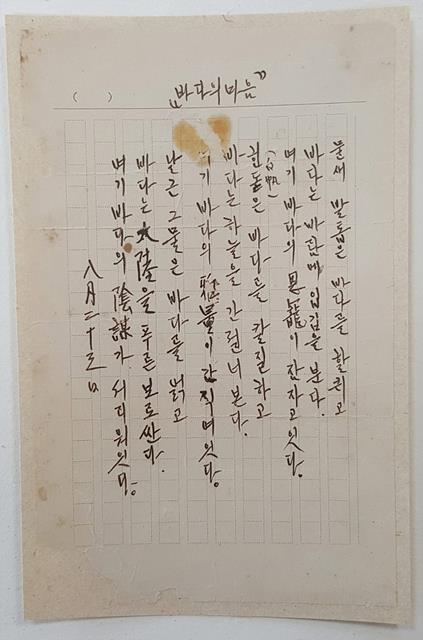 ( ) "바다의 마음"
물새 발톱은 바다를 할퀴고
바다는 바람에 입김을 분다.
여기 바다의 恩寵이 잠자고 잇다.
(白帆)
힌 돛은 바다를 칼질하고
바다는 하늘을 간질너 본다.
여기 바다의 雅量이 간직여 잇다.
날근 그물은 바다를 얽고
바다는 大陸을 푸른 보로 싼다.
여기 바다의 陰謀가 서리워 잇다.
八月二十三日